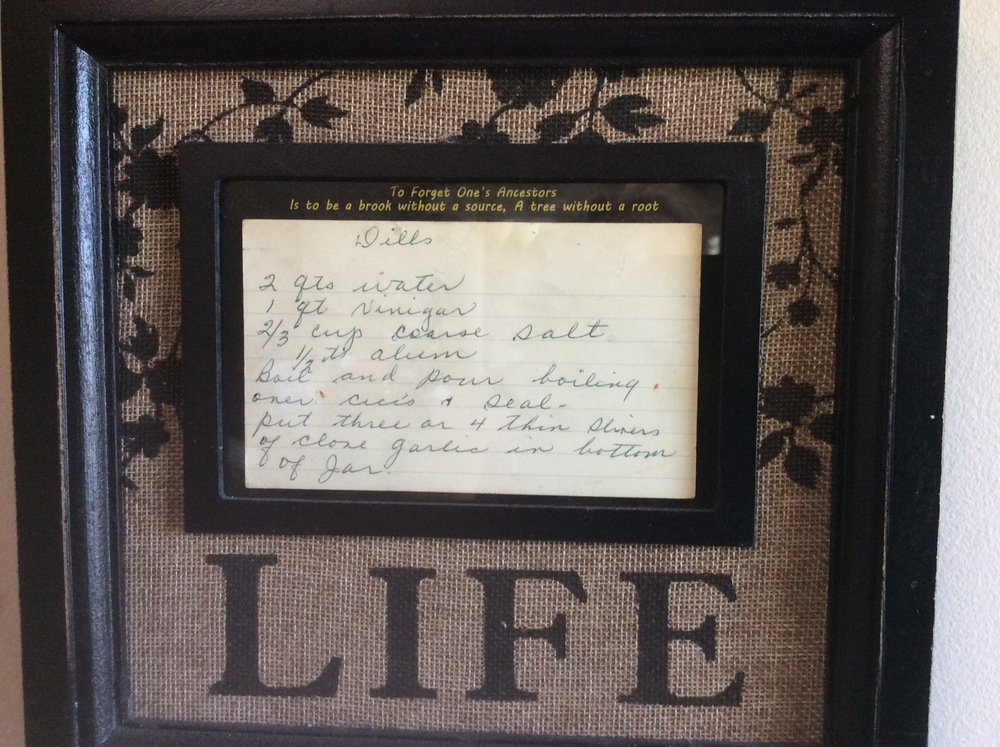 To Forget One's Ancestors
Is to be a brook without a source, A tree without a root
Dills
2 qts water
1 qt Vinigar
2/3 cup coarse salt
1/2 ts alum
Boil and pour boiling
over cuc's & seal-
put three or 4 thin slivers
of clove garlic in bottom
of Jar.
LIFE